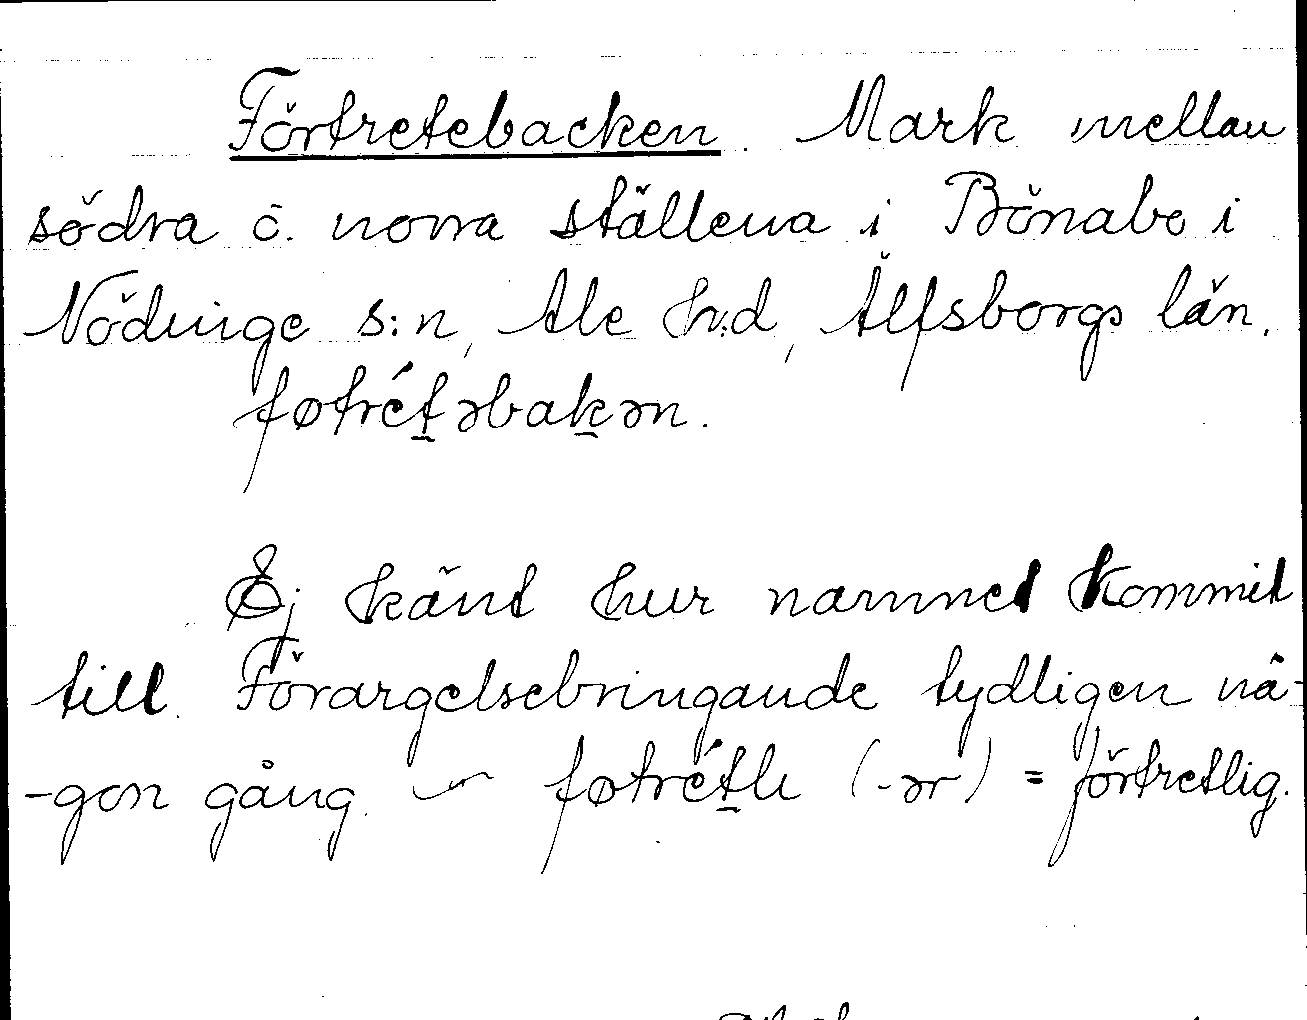 Förtretebacken. Mark mellan
södra o. norra ställena i Bönabo i
Nödinge s:n, Ale h:d, Älfsborgs län.
føtrétəbakən.
Ej känt hur namnet kommit
till. Förargelsebringande tydligen nå-
-gon gång. – føtrétli (-ər) = förtretlig.